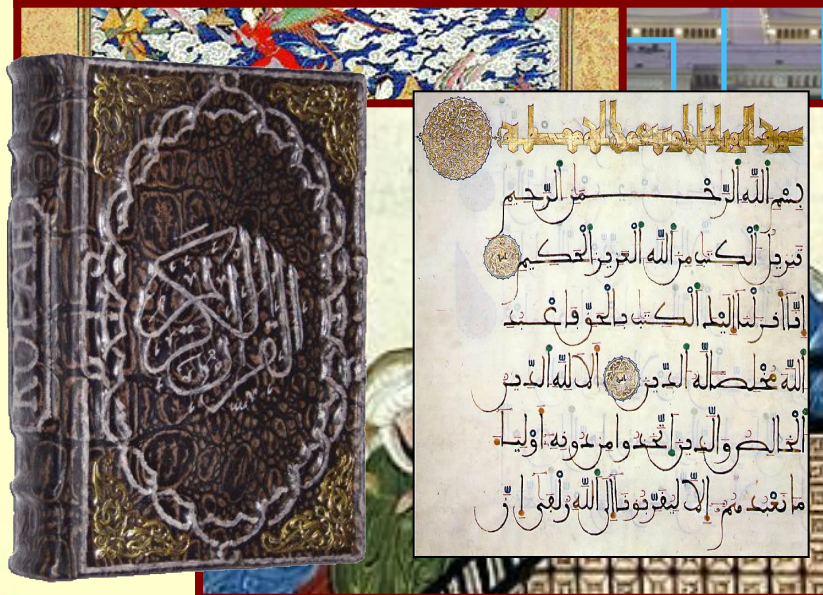 القرآن الكريم
بسم الله الرحمن الرحيم
تنزيل الكتب من الله العزيز الحكيم
إنا أنزلنا إليك الكتب بالحق فاعبد
الله مخلصا له الدين ألا لله الدين
الخالص والذين اتخذوا من دونه أولياء
ما نعبدهم إلا ليقربونا إلى الله زلفى إن